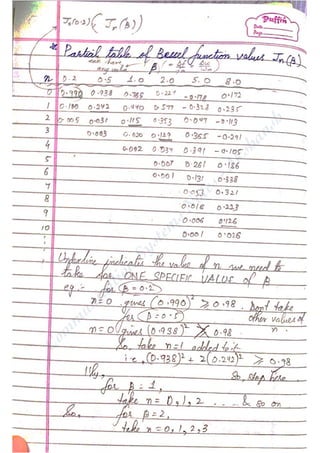 Puffin
Date
Page
J₀(0.2) { Jₙ(β)
* Partial table of Bessel function values Jₙ(β)
can have any value β
n 0.2 0.5 1.0 2.0 5.0 8.0
0 0.990 0.938 0.224 -0.178 0.172
1 0.100 0.242 0.440 0.577 -0.328 0.235
2 0.005 0.031 0.115 0.353 0.047 -0.113
3 0.003 0.020 0.129 0.365 -0.291
4 0.002 0.034 0.391 -0.105
5 0.007 0.261 0.186
6 0.001 0.131 0.338
7 0.053 0.321
8 0.018 0.223
9 0.006 0.126
10 0.001 0.026
Underline indicates the value of n we need to
take for ONE SPECIFIC VALUE of β
eg :- for β=0.2
n=0 gives (0.990)² ≥ 0.98. Don't take
for β=0.5 other values of
n=0 gives (0.938)² 0.98 n.
So, take n=1 added to it
i.e, (0.938)² + 2(0.242)² ≥ 0.98
So, stop here
for β=1,
take n=0,1,2 ... & so on
So, for β=2,
take n=0,1,2,3